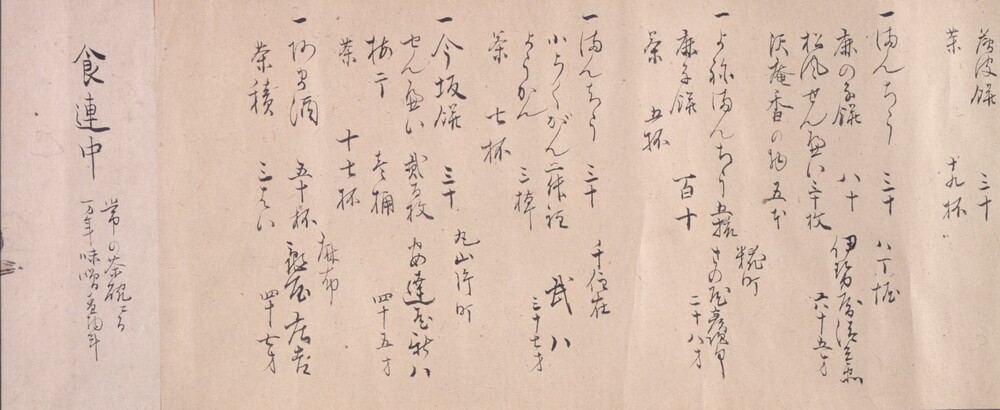 薄皮餅 三十
茶 十九杯
一まんぢう 三十 八丁堀
鹿の子餅 八十 伊勢屋清兵衛
松風せんべい 三十枚 六十五才
沢庵香の物 五本
一よねまんぢう 五拾 麹町
鹿子餅 百十 二十八才
茶 五杯
一まんぢう 三十 千住在
小らくがん 二升程 武八
ようかん 三棹 三十七才
茶 七杯
一今坂餅 三十 丸山片町
せんべい 弐百枚 安達屋新八
梅干 壱桶 四十五才
茶 十七杯
一 酒 五十杯 麻布
茶積 三 四十七才
食連中 常の茶碗にて
万年味噌